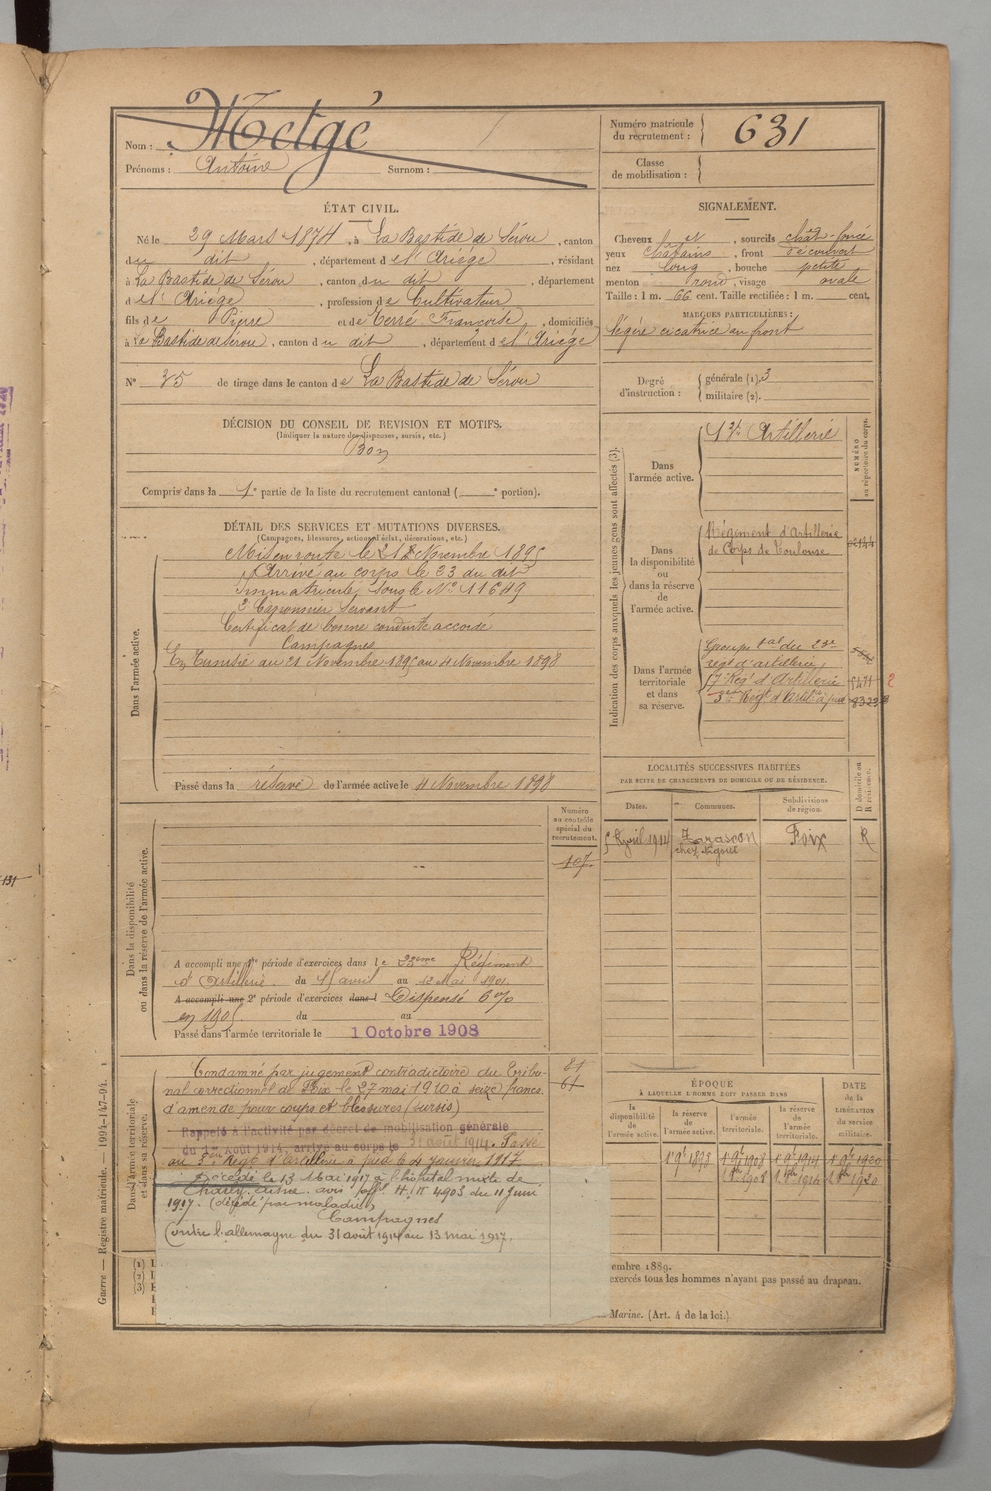 Nom : Metgé
Prénoms : Antoine Surnom :
Numéro matricule du recrutement : 631
Classe de mobilisation :
ÉTAT CIVIL.
Né le 29 Mars 1874, à La Bastide de Sérou, canton
du dit, département de l'Ariége, résidant
à La Bastide de Sérou, canton du dit, département
de l'Ariége, profession de Cultivateur
fils de Pierre et de Terré Françoise, domiciliés
à La Bastide de Sérou, canton du dit, département de l'Ariége
N° 35 de tirage dans le canton de La Bastide de Sérou
SIGNALEMENT.
Cheveux et, sourcils chât-foncé
yeux châtains, front découvert
nez long, bouche petite
menton rond, visage ovale
Taille : 1 m. 66 cent. Taille rectifiée : 1 m. cent.
MARQUES PARTICULIÈRES :
légère cicatrice au front
Degré d'instruction : générale (1). 3
militaire (2).
DÉCISION DU CONSEIL DE REVISION ET MOTIFS.
(Indiquer la nature des dispenses, sursis, etc.)
Bon
Compris dans la 1e partie de la liste du recrutement cantonal ( e portion).
DÉTAIL DES SERVICES ET MUTATIONS DIVERSES.
(Campagnes, blessures, actions d'éclat, décorations, etc.)
Dans l'armée active.
Mis en route le 21 Novembre 1895
Arrivé au corps le 23 du dit
Immatriculé sous le N° 11689
2e Canonnier Servant
Certificat de bonne conduite accordé
Campagnes
En Tunisie du 21 Novembre 1895 au 4 Novembre 1898
Passé dans la réserve de l'armée active le 4 Novembre 1898
Indication des corps auxquels les jeunes gens sont affectés (3).
NUMÉRO au répertoire du corps.
Dans l'armée active.
Artillerie
Dans la disponibilité ou dans la réserve de l'armée active.
Régiment d'Artillerie
de Corps de Toulouse
Dans l'armée territoriale et dans sa réserve.
Groupe tal du 23e
régt d'artillerie
Régt d'Artillerie
3e Régt d'Artie à pied
LOCALITÉS SUCCESSIVES HABITÉES
PAR SUITE DE CHANGEMENTS DE DOMICILE OU DE RÉSIDENCE.
Dates. Communes. Subdivisions de région. D domicile ou R résidence.
5 Avril 1914 Tarascon Foix R
chez Sigout
Dans la disponibilité ou dans la réserve de l'armée active.
Numéro au contrôle spécial du recrutement.
107
A accompli une 1re période d'exercices dans le 23ème Régiment
d'Artillerie du 15 avril au 12 Mai 1901
A accompli une 2e période d'exercices dans l Dispensé 6%
en 1905 du au
Passé dans l'armée territoriale le 1 Octobre 1908
Dans l'armée territoriale et dans sa réserve.
Condamné par jugement contradictoire du Tribu-
nal correctionnel de Foix le 27 mai 1910 à seize francs
d'amende pour coups et blessures (sursis)
Rappelé à l'activité par décret de mobilisation générale
du 1er Août 1914, arrivé au corps le 31 août 1914. Passé
au 3e Régt d'artillerie à pied le 4 janvier 1917
Décédé le 13 Mai 1917 à l'hôpital mixte de
1917. (décédé par maladie)
Campagnes
Contre l'allemagne du 31 août 1914 au 13 mai 1917.
ÉPOQUE
À LAQUELLE L'HOMME DOIT PASSER DANS
DATE de la LIBÉRATION du service militaire.
la disponibilité de l'armée active. la réserve de l'armée active. l'armée territoriale. la réserve de l'armée territoriale.
1 9e 1898 1 9e 1908 1 9e 1914 1 9e 1920
(1) I
(2) I
(3) I
embre 1889.
exercés tous les hommes n'ayant pas passé au drapeau.
Marine. (Art. 4 de la loi.)
Guerre — Registre matricule. — 1994-147-94.